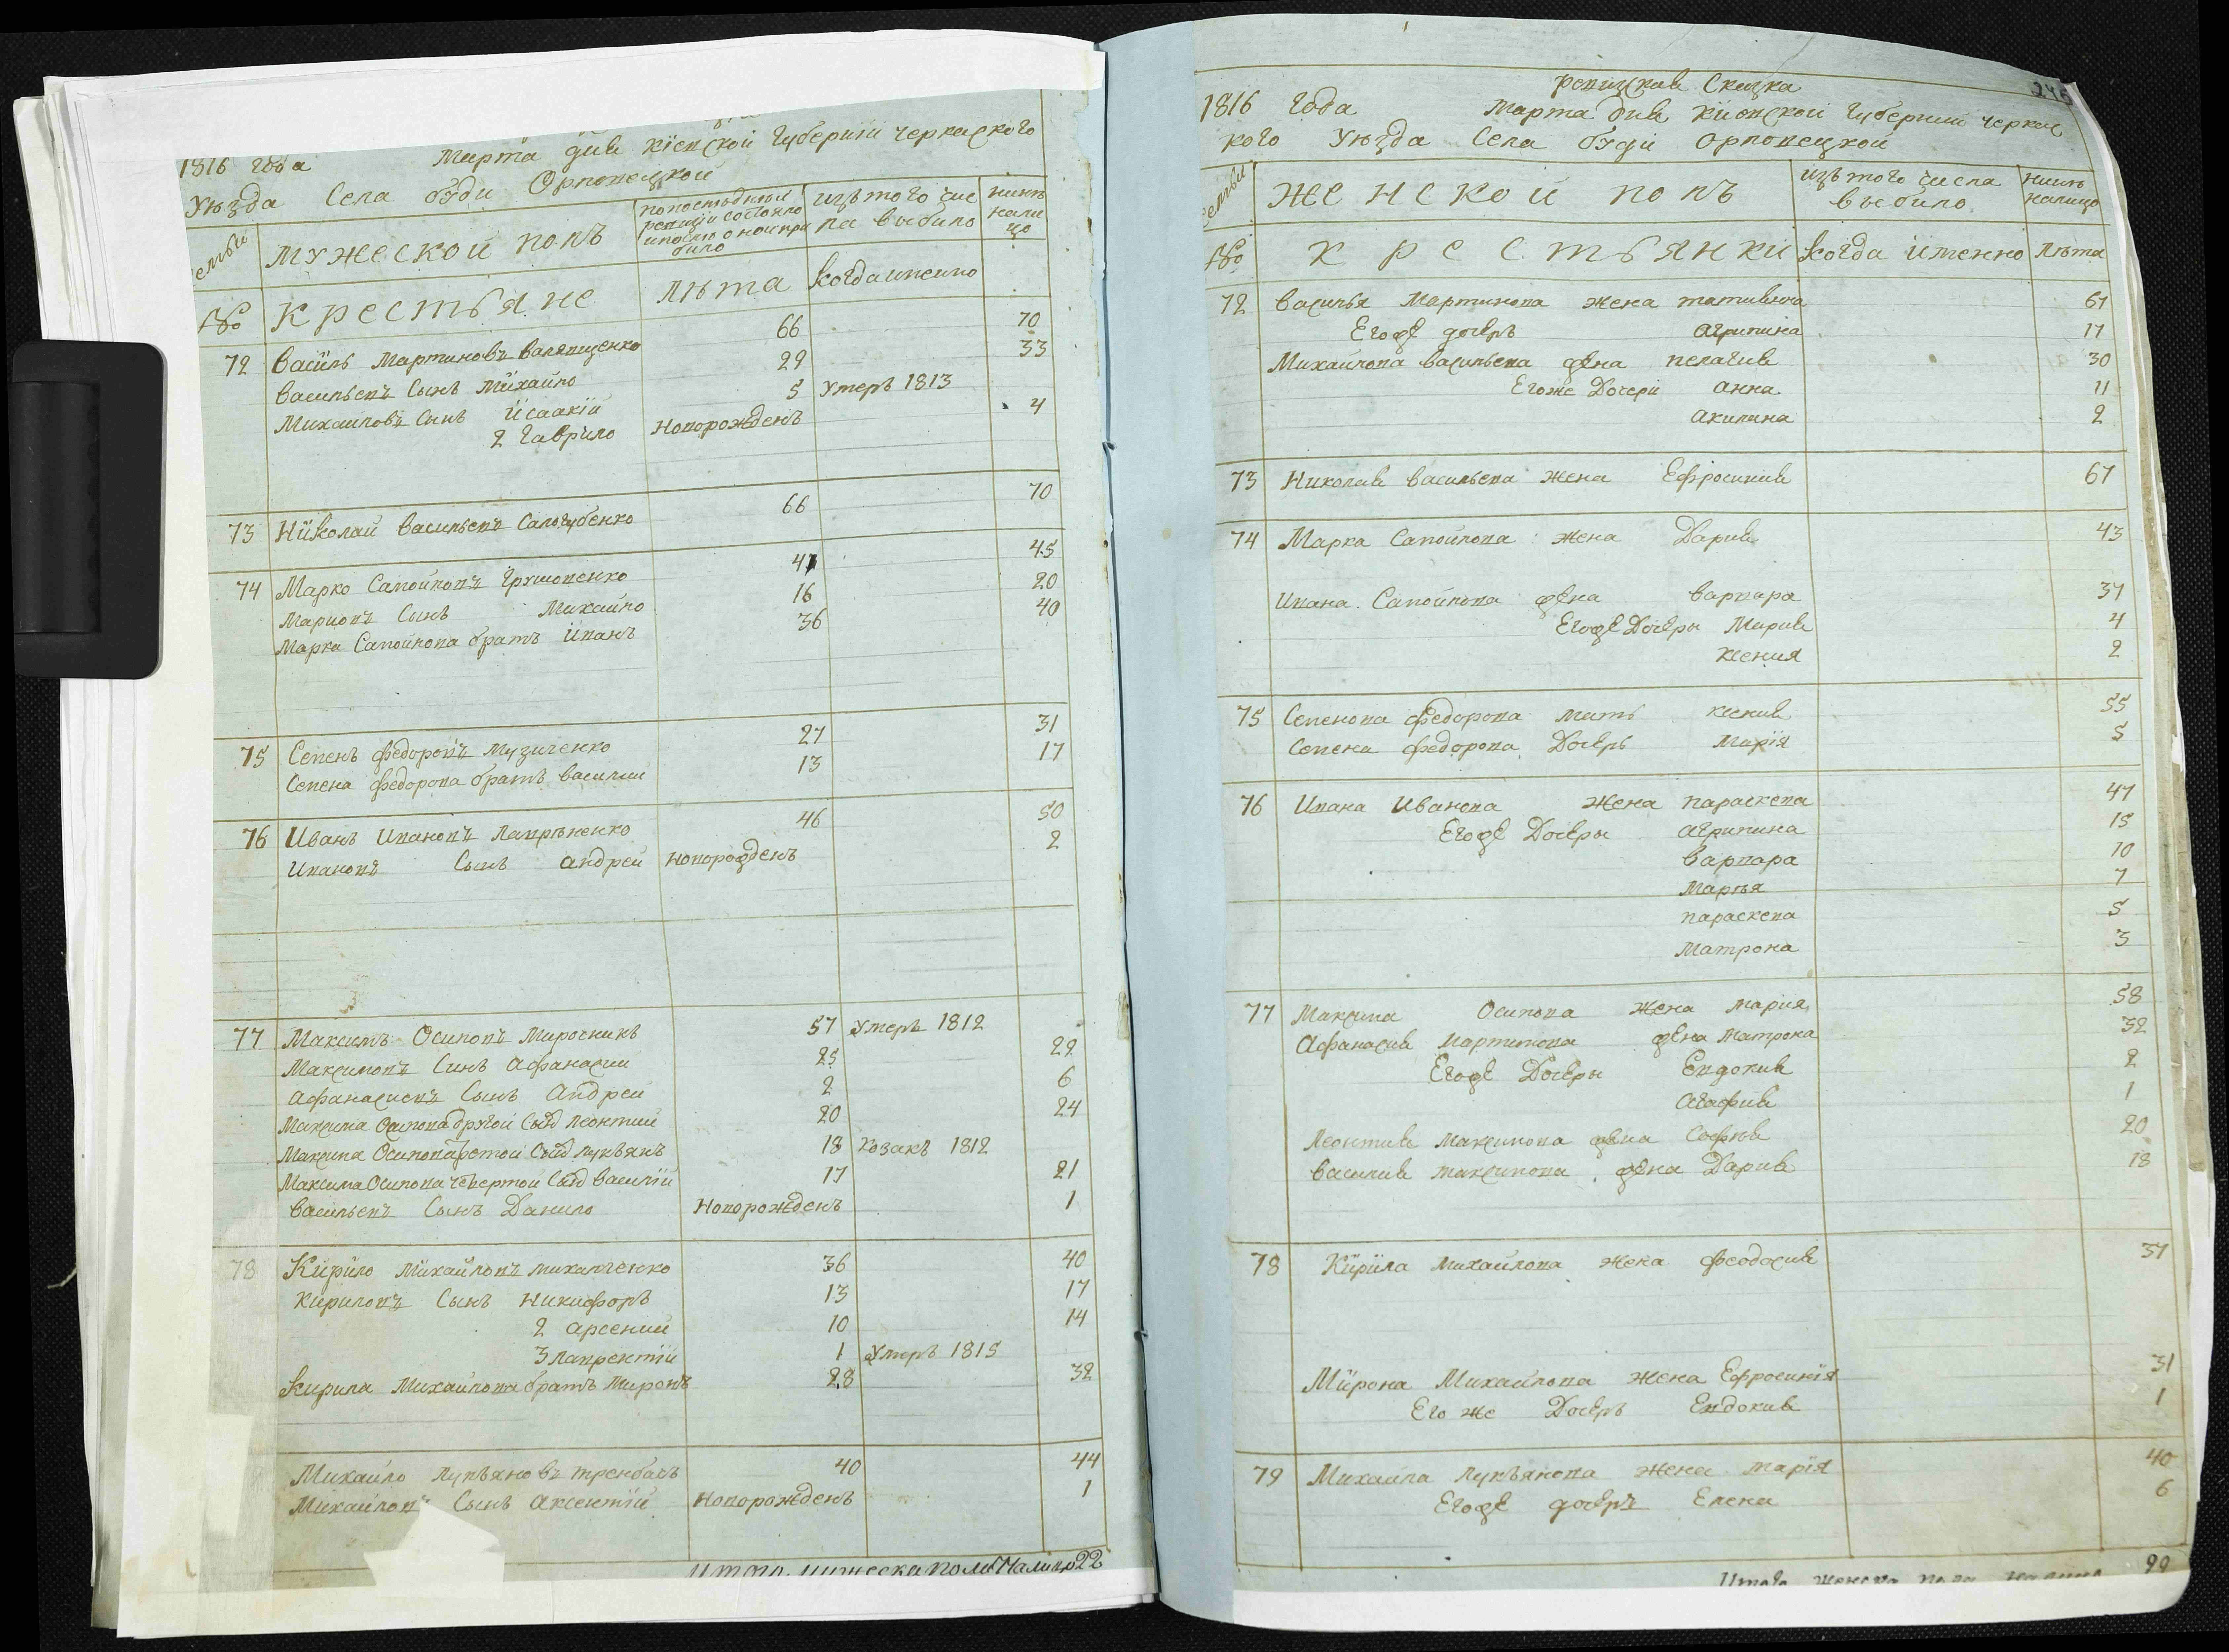 1816 года Марта дня Кіевской Губерній Черкаского
Уѣзда Села Буди Орловецкой
Семьи
мужеской полъ
по последнюю ревизіи состояло и после оной прибило
изъ того чис
ла выбило
нинѣ
нали
цо
№
Крестьяне
лѣта
когда именно
72 Василь Мартиновъ 66 70
Васильевъ Сынъ Михайло 29 33
Михайловъ Сынъ Исаакій 5 Умеръ 1813
2 Гаврило Новорожденъ 4
73 Николай Васильевъ Салогубенко 66 70
74 Марко Самойловъ 41 45
Марковъ Сынъ Михайло 16 20
Марка Самойлова братъ Иванъ 36 40
75 Семенъ Федоровъ Музиченко 27 31
Семена Федорова братъ Василий 13 17
76 Иванъ Ивановъ Лавріненко 46 50
Ивановъ Сынъ Андрей Новорожденъ 2
77 Максимъ Осиповъ Мирочникъ 57 Умеръ 1812
Максимовъ Синъ Афанасий 25 29
Афанасиевъ Сынъ Андрей 2 6
Максима Осипова другой Сынъ Леонтий 20 24
Максима Осипова третой Сынъ Лукъянъ 18 Козакъ 1812
Максима Осипова четвертой Сынъ Василій 17 21
Васильевъ Сынъ Данило Новорожденъ 1
78 Кирило Михайловъ Михайленко 36 40
Кириловъ Сынъ Никифоръ 13 17
2 Арсений 10 14
3 Лаврентій 1 Умеръ 1815
Кирила Михайлова братъ Миронъ 28 32
Михайло Лукъяновъ Трембачъ 40 44
Михайловъ Сынъ Аксентій Новорожденъ 1
Итого мужеска пола Налицо 22
246
Ревизская Сказка
1816 года Марта дня Кіевской Губерний Черкас
кого Уѣзда Села Буди Орловецкой
Семьи
женской полъ
изъ того числа
выбило
Нинѣ
налицо
№
крестьянки
когда именно
лѣта
72 Василья Мартинова жена Татияна 61
Егоже дочерь Агрипина 17
Михайлова Васильева жена Пелагия 30
Егоже Дочери Анна 11
Акилина 2
73 Николая Васильева жена Ефросиния 67
74 Марка Самойлова жена Дария 43
Ивана Самойлова жена Варвара 37
Егоже Дочеры Мария 4
Ксения 2
75 Семенова Федорова мать Ксения 55
Семена Федорова Дочерь Марія 5
76 Ивана Иванова жена Параскева 47
Егоже Дочеры Агрипина 15
Варвара 10
Марья 7
Параскева 5
Матрона 3
77 Максима Осипова жена Мария 58
Афанасия Мартинова жена Матрона 32
Егоже Дочеры Евдокия 2
Агафия 1
Леонтия Максимова жена Софія 20
Василия Максимова жена Дария 18
78 Кирила Михайлова жена Феодосия 37
Мирона Михайлова жена Ефросинія 31
Его же Дочерь Евдокия 1
79 Михайла Лукъянова жена Марія 40
Егоже дочеръ Елена 6
Итого женска пола налицо 29